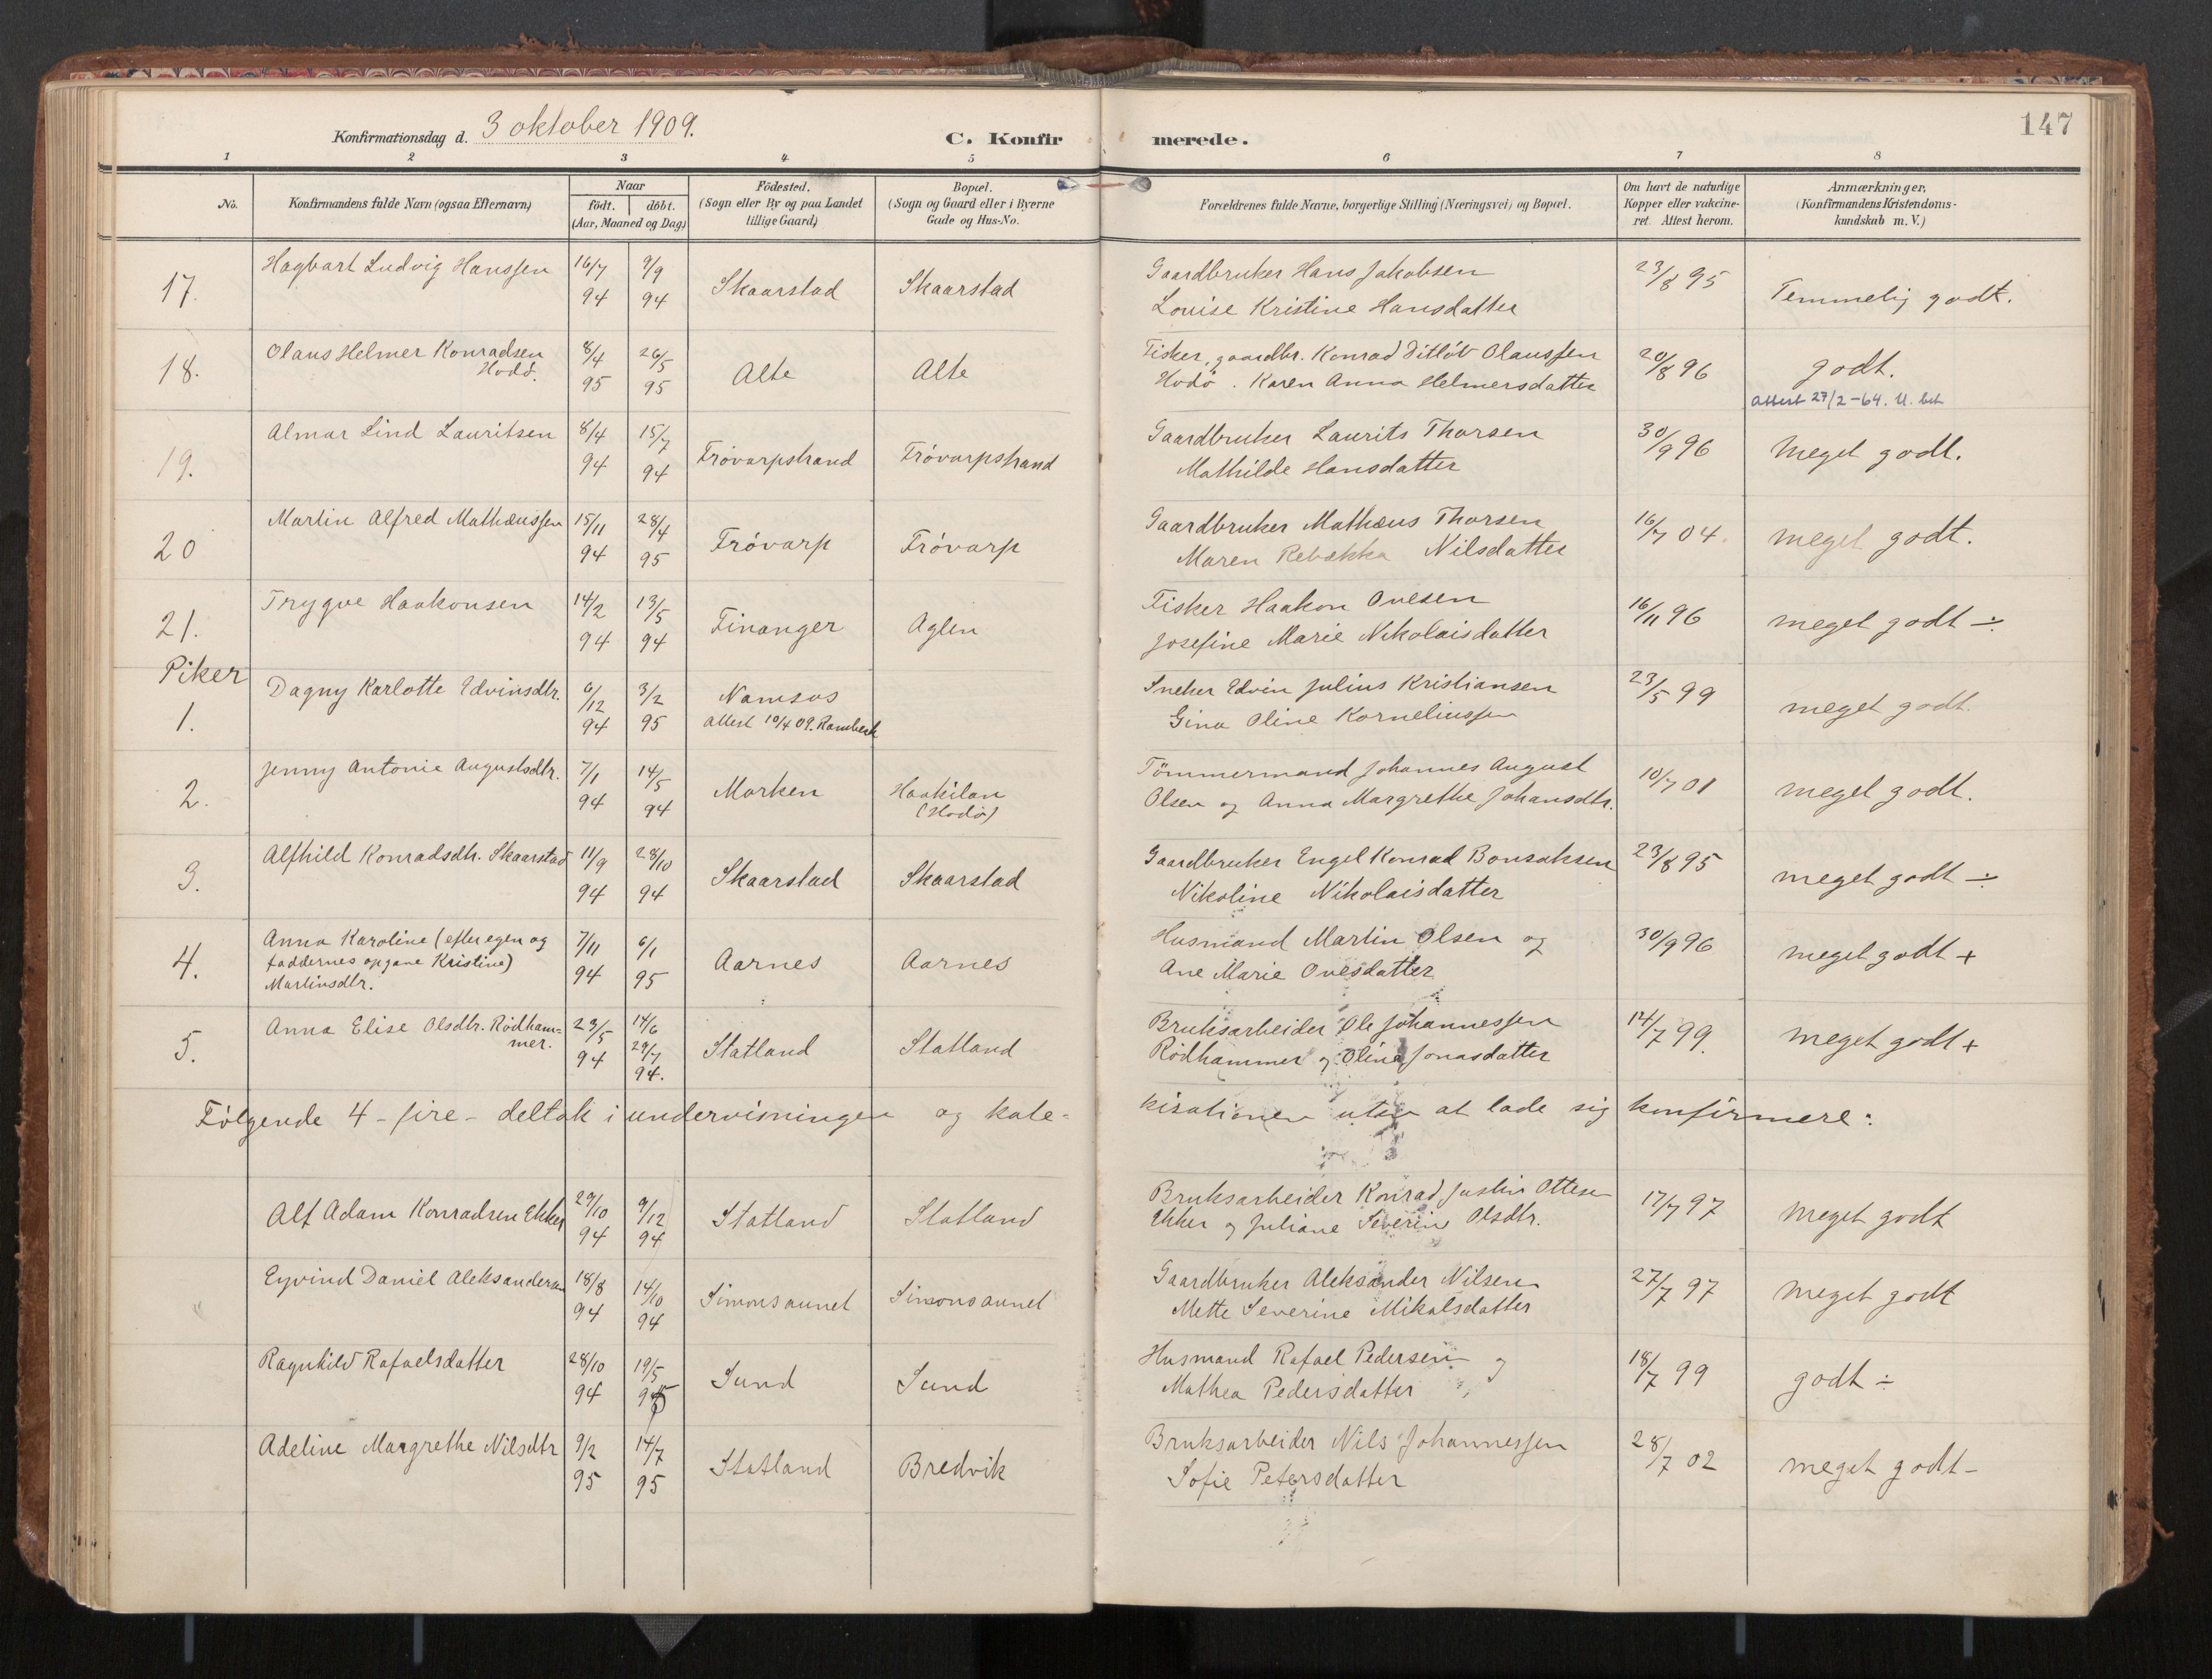 147
Konfirmationsdag d. 3 oktober 1909.
C. Konfirmerede.
1 2 3 4 5 6 7 8
No.
Konfirmandens fulde Navn (ogsaa Efternavn)
Naar
födt. | döbt.
(Aar, Maaned og Dag)
Födested.
(Sogn eller By og paa Landet
tillige Gaard)
Bopæl.
(Sogn og Gaard eller i Byerne
Gade og Hus-No.
Forældrenes fulde Navne, borgerlige Stilling (Næringsvei) og Bopæl.
Om havt de naturlige
Kopper eller vakcine-
ret. Attest herom.
Anmærkninger,
(Konfirmandens Kristendoms-
kundskab m. V.)
17. Hagbart Ludvig Hanssen 16/7 94 9/9 94 Skaarstad Skaarstad Gaardbruker Hans Jakobsen
Louise Kristine Hansdatter 23/8 95 Temmelig godt.
18. Olaus Helmer Konradsen
Hodö. 8/4 95 26/5 95 Alte Alte Fisker, gaardbr. Konrad Ditløv Olaussen
Hodö. Karen Anna Helmersdatter 20/8 96 godt.
Attest 27/2-64. U. bet
19. Almar Lind Lauritsen 8/4 94 15/7 94 Frövarpstrand Frövarpstrand Gaardbruker Laurits Thorsen
Mathilde Hansdatter 30/9 96 Meget godt.
20 Martin Alfred Mathæussen 15/11 94 28/4 95 Frövarp Frövarp Gaardbruker Mathæus Thorsen
Maren Rebekka Nilsdatter 16/7 04. meget godt.
21. Trygve Haakonsen 14/2 94 13/5 94 Finanger Aglen Fisker Haakon Ovesen
Josefine Marie Nikolaisdatter 16/11 96 meget godt ÷
Piker
1. Dagny Karlotte Edvinsdtr. 6/12 94 3/2 95 Namsos
attest 10/4 09. Rambech Sneker Edvin Julius Kristiansen
Gina Oline Korneliussen 23/5 99 meget godt.
2. Jenny Antonie Augustsdtr. 7/1 94 14/5 94 Morken Haakilan
(Hodö) Tömmermand Johannes August
Olsen og Anna Margrethe Johansdtr. 10/7 01 meget godt.
3. Alfhild Konradsdtr. Skaarstad 11/9 94 28/10 94 Skaarstad Skaarstad Gaardbruker Engel Konrad Bonsaksen
Nikoline Nikolaisdatter 23/8 95 meget godt ÷
4. Anna Karoline (efter egen og
faddernes opgave Kristine)
Martinsdtr. 7/11 94 6/1 95 Aarnes Aarnes Husmand Martin Olsen og
Ane Marie Ovesdatter 30/9 96 meget godt +
5. Anna Elise Olsdtr. Rödham=
mer. 23/5 94 14/6 29/7 94. Statland Statland Bruksarbeider Ole Johannessen
Rödhammer og Oline Jonasdatter 14/7 99. meget godt +
Følgende 4 - fire - deltok i undervisningen og kate=
kisationen uten at lade sig konfirmere:
Alf Adam Konradsen Ekker 29/10 94 9/12 94 Statland Statland Bruksarbeider Konrad Justin Ottesen
Ekker og Juliane Severin Olsdtr. 17/7 97 meget godt
Eyvind Daniel Aleksandersen 18/8 94 14/10 94 Simonsaunet Simonsaunet Gaardbruker Aleksander Nilsen
Mette Severine Mikalsdatter 27/7 97 meget godt
Ragnhild Rafaelsdatter 28/10 94 19/5 95 Sund Sund Husmand Rafael Pedersen og
Mathea Pedersdatter 18/7 99 godt ÷
Adeline Margrethe Nilsdtr 9/2 95 14/7 95 Statland Bredvik Bruksarbeider Nils Johannessen
Sofie Petersdatter 28/7 02 meget godt -